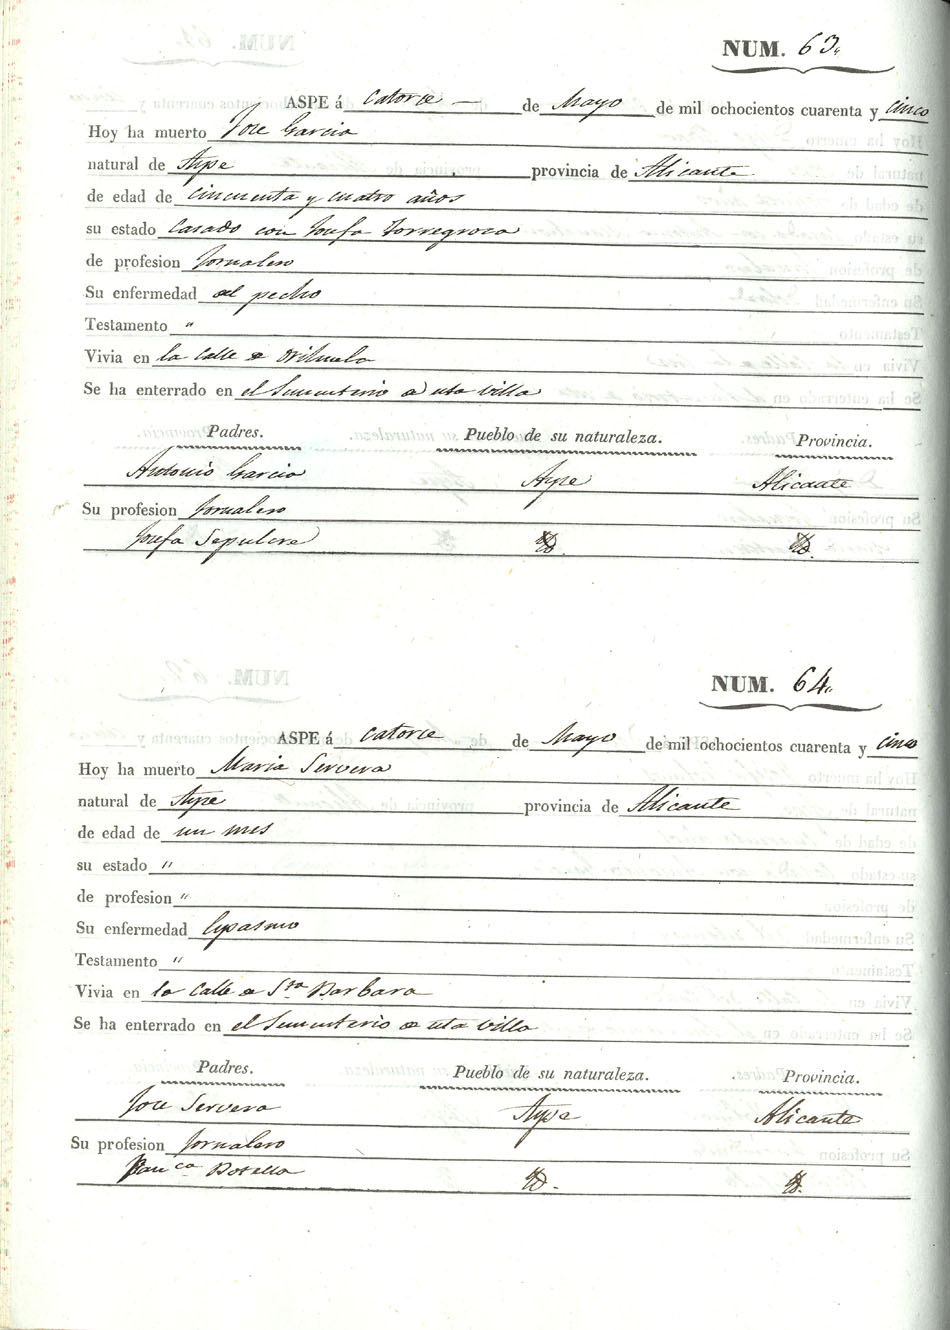 NUM. 63.
ASPE á catorce de Mayo de mil ochocientos cuarenta y cinco
Hoy ha muerto Jose Garcia
natural de Aspe provincia de Alicante
de edad de cincuenta y cuatro años
su estado Casado con Josefa Torregrosa
de profesion Jornalero
Su enfermedad del pecho
Testamento "
Vivia en la Calle de Orihuela
Se ha enterrado en el Sementerio de esta villa
Padres. Pueblo de su naturaleza. Provincia.
Antonio Garcia Aspe Alicante
Su profesion Jornalero
Josefa Sepulcre Yd. Yd.
NUM. 64.
ASPE á catorce de Mayo de mil ochocientos cuarenta y cinco
Hoy ha muerto Maria Servera
natural de Aspe provincia de Alicante
de edad de un mes
su estado "
de profesion "
Su enfermedad Espasmo
Testamento "
Vivia en la Calle de Sta Barbara
Se ha enterrado en el Sementerio de esta villa
Padres. Pueblo de su naturaleza. Provincia.
Jose Servera Aspe Alicante
Su profesion Jornalero
Franca Botella Yd. Yd.